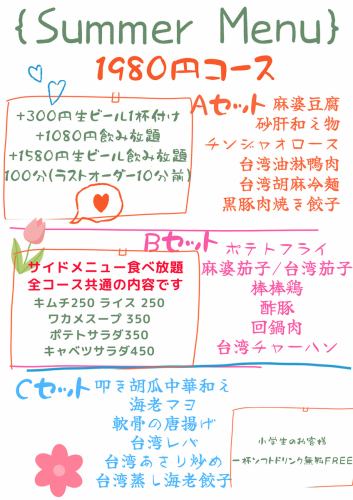 {Summer Menu}
1980円コース
+300円生ビール1杯付け
+1080円飲み放題
+1580円生ビール飲み放題
100分(ラストオーダー10分前)
Aセット 麻婆豆腐
砂肝和え物
チンジャオロース
台湾油淋鴨肉
台湾胡麻冷麺
黒豚肉焼き餃子
サイドメニュー食べ放題
全コース共通の内容です
キムチ250 ライス 250
ワカメスープ 350
ポテトサラダ350
キャベツサラダ450
Bセット ポテトフライ
麻婆茄子/台湾茄子
棒棒鶏
酢豚
回鍋肉
台湾チャーハン
Cセット 叩き胡瓜中華和え
海老マヨ
軟骨の唐揚げ
台湾レバ
台湾あさり炒め
台湾蒸し海老餃子
小学生のお客様
一杯ソフトドリンク無料FREE